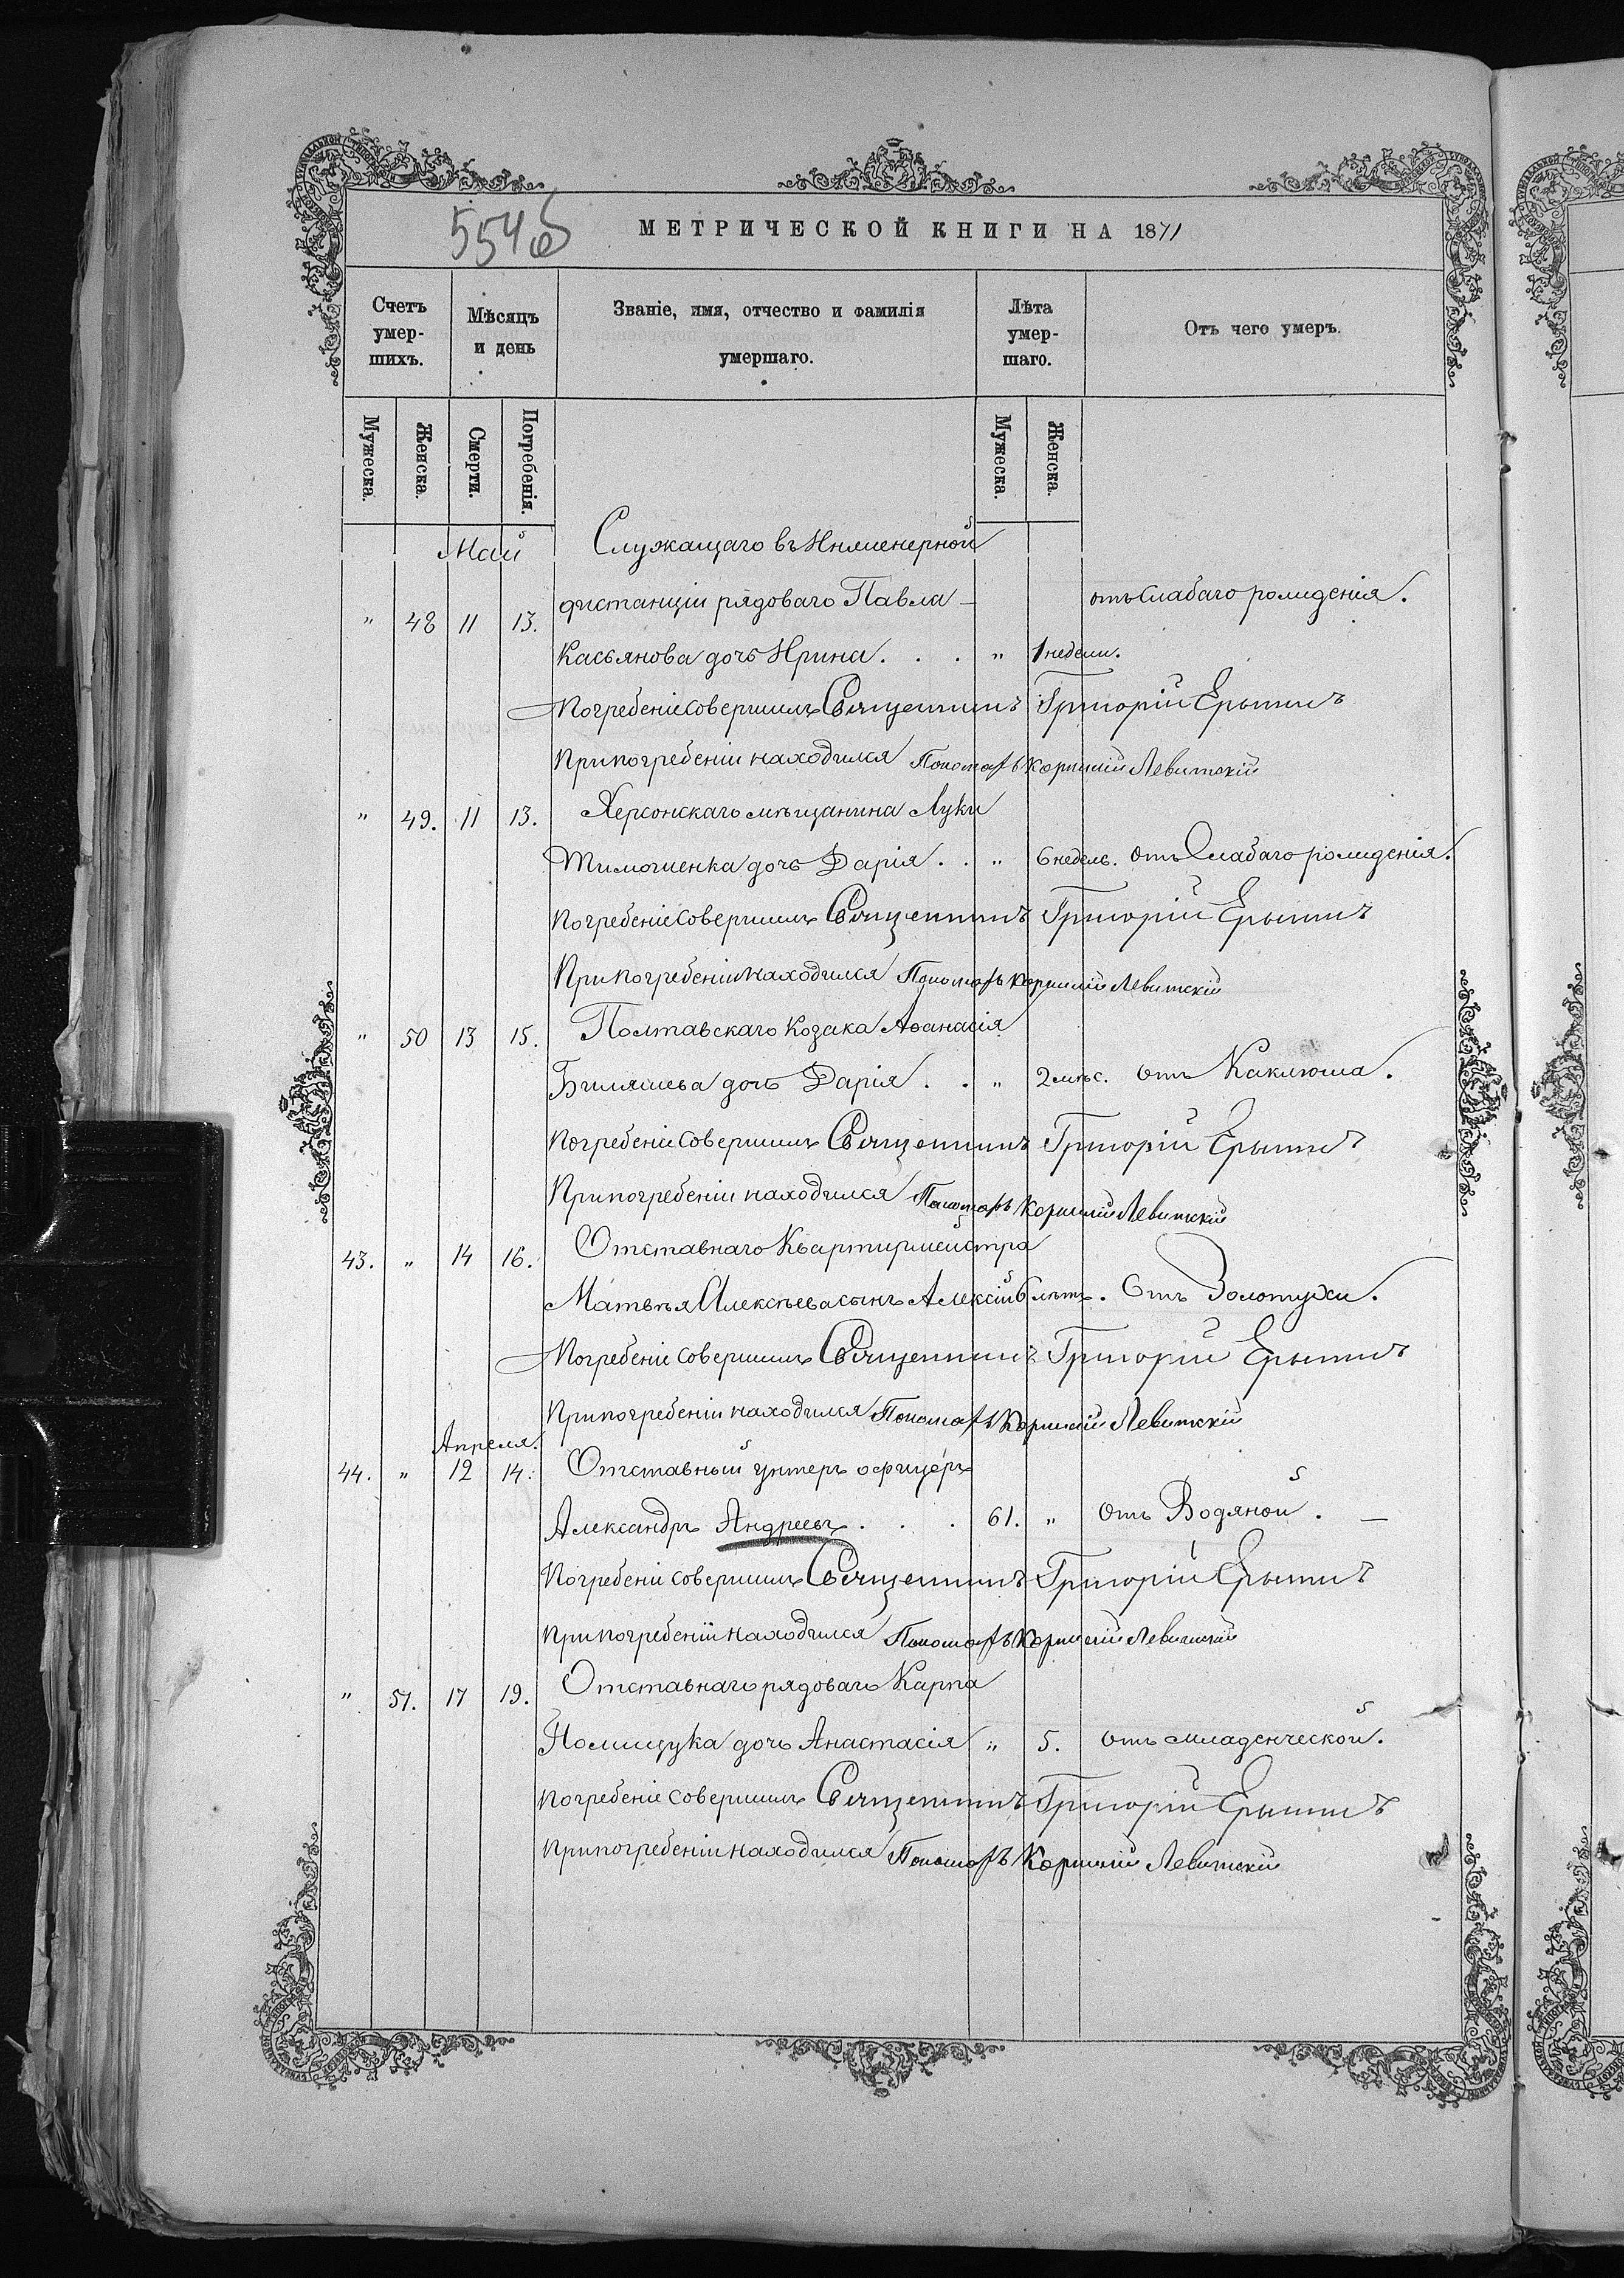 554 об
МЕТРИЧЕСКОЙ КНИГИ НА 1871
Счетъ умер-шихъ. Мѣсяцъ и день Званіе, имя, отчество и фамилія умершаго. Лѣта умер-шаго. Отъ чего умеръ.
Мужеска. Женска. Смерти. Погребенія. Мужеска. Женска.
Май Служащаго въ Инженерной
" 48 11 13. дистанціи рядоваго Павла – отъ Слабаго рожденія.
Касьянова дочь Ирина . . . " 1 недели.
Погребеніе совершилъ Священникъ Григорій
При погребеніи находился Пономарь Корнилій Левитскій
" 49. 11 13. Херсонскаго мѣщанина Луки
Тимошенка дочь Дарія . . " 6 недель. отъ Слабаго рожденія.
Погребеніе совершилъ Священникъ Григорій
При погребеніи находился Пономарь Корнилій Левитскій
" 50 13 15. Полтавскаго Козака Аѳанасія
дочь Дарія . . " 2 мѣс. отъ Каклюша.
Погребеніе совершилъ Священникъ Григорій
При погребеніи находился Пономарь Корнилій Левитскій
43. " 14 16. Отставнаго Квартирмейстра
Матвѣя Алексѣева сынъ Алексій 6 лѣтъ. Отъ Золотухи.
Погребеніе совершилъ Священникъ Григорій
При погребеніи находился Пономарь Корнилій Левитскій
Апреля.
44. " 12 14. Отставный унтеръ офицеръ
Александръ Андреевъ . . . 61. " отъ Водяной. –
Погребеніе совершилъ Священникъ Григорій
При погребеніи находился Пономарь Корнилій Левитскій
" 51. 17 19. Отставнаго рядоваго Карпа
Полищука дочь Анастасія " 5. отъ младенческой.
Погребеніе совершилъ Священникъ Григорій
При погребеніи находился Пономарь Корнилій Левитскій